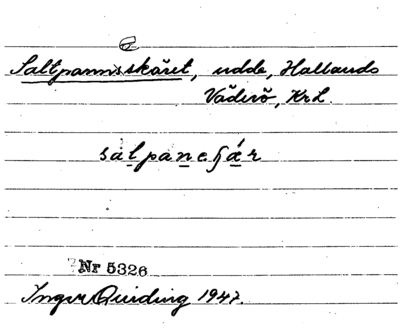 Saltpannskäret, udde, Hallands
Väderö, Kr L.
salpaneʃár
Nr 5326
Inger Quiding 1947.